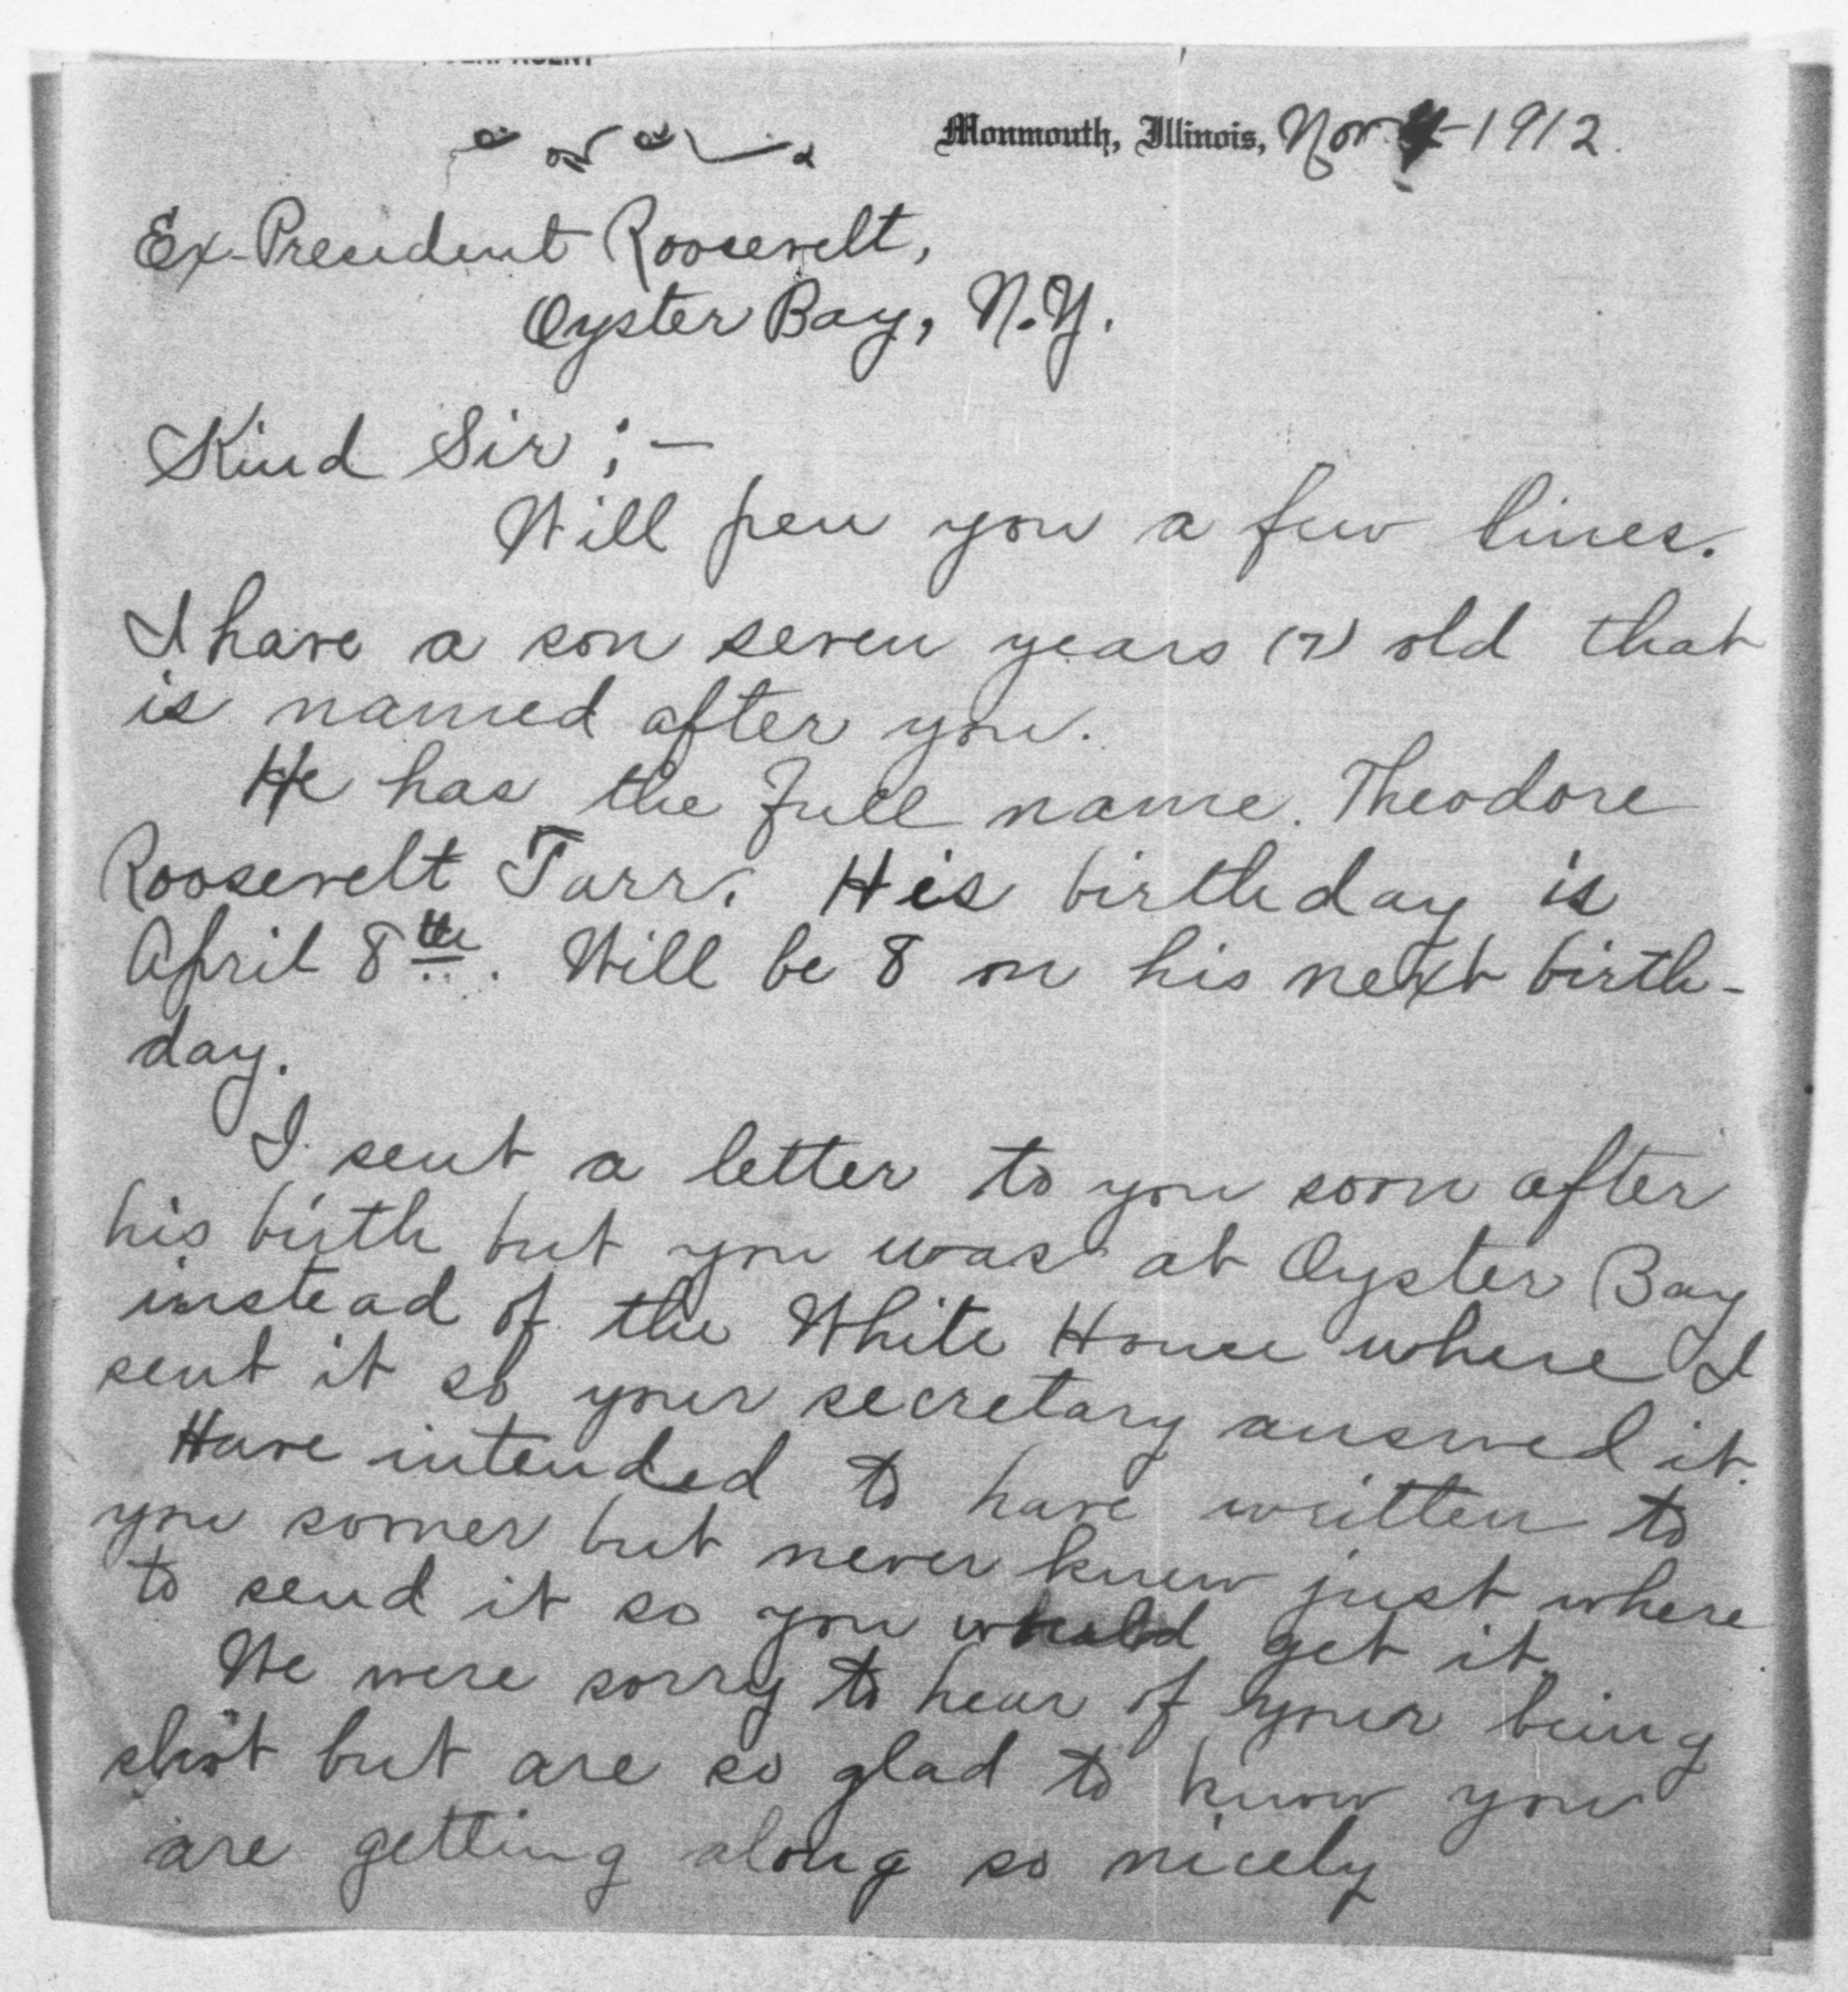 Monmouth, Illinois, Nov 4-1912.
Ex-President Roosevelt,
Oyster Bay, N.Y.
Kind Sir;-
Will pen you a few lines.
I have a son seven years (7) old that
is named after you.
He has the full name. Theodore
Roosevelt Tarr. His birthday is
April 8th. Will be 8 on his next birth-
day.
I sent a letter to you soon after
his birth but you was at Oyster Bay
instead of the White House where I
sent it so your secretary answed it.
Have intended to have written to
you sooner but never knew just where
to send it so you would get it.
We were sorry to hear of your being
shot but are so glad to know you
are getting along so nicely